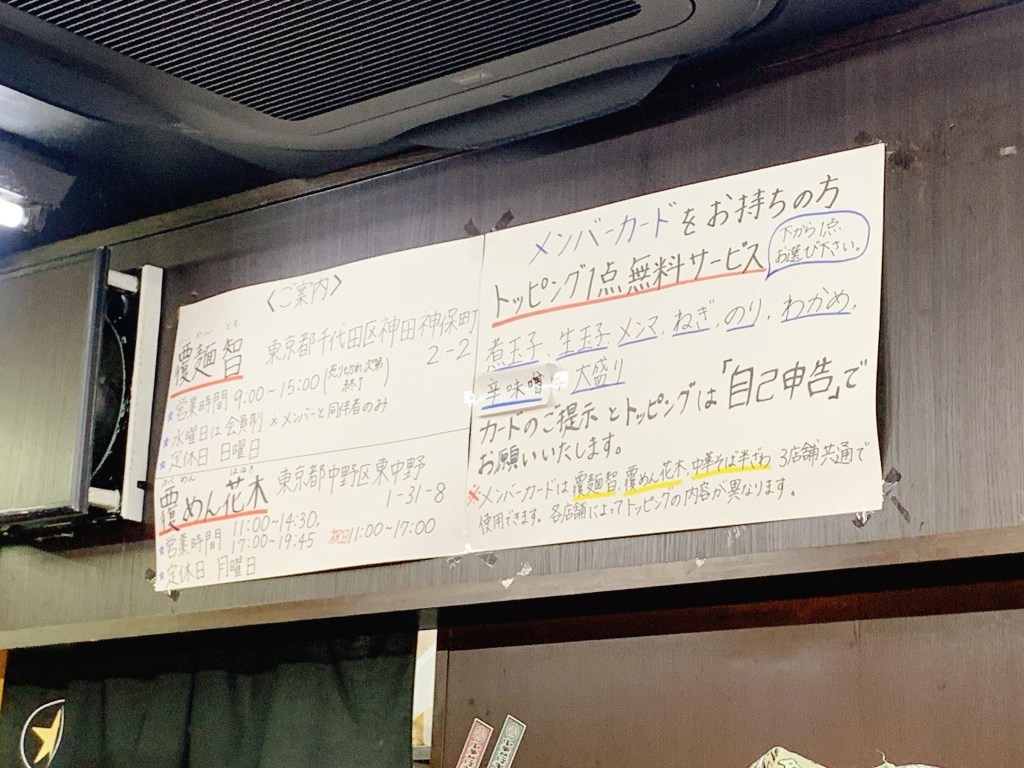 〈ご案内〉
めん とも
覆麺智
東京都千代田区神田神保町
2-2
★営業時間 9:00~15:00(売り切れ次第終了)
★水曜日は会員制 ※メンバーと同伴者のみ
★定休日 日曜日
ふく めん はなき
覆めん花木
東京都中野区東中野
1-31-8
★営業時間 11:00~14:30,
17:00~19:45
11:00~17:00
★定休日 月曜日
メンバーカードをお持ちの方
トッピング1点無料サービス
下から1点
お選び下さい。
煮玉子、生玉子、メンマ、ねぎ、のり、わかめ、
辛味噌、大盛り
カードのご提示とトッピングは「自己申告」で
お願いいたします。
※メンバーカードは覆麺智、覆めん花木、中華そば半ざわ 3店舗共通で
使用できます。各店舗によってトッピングの内容が異なります。